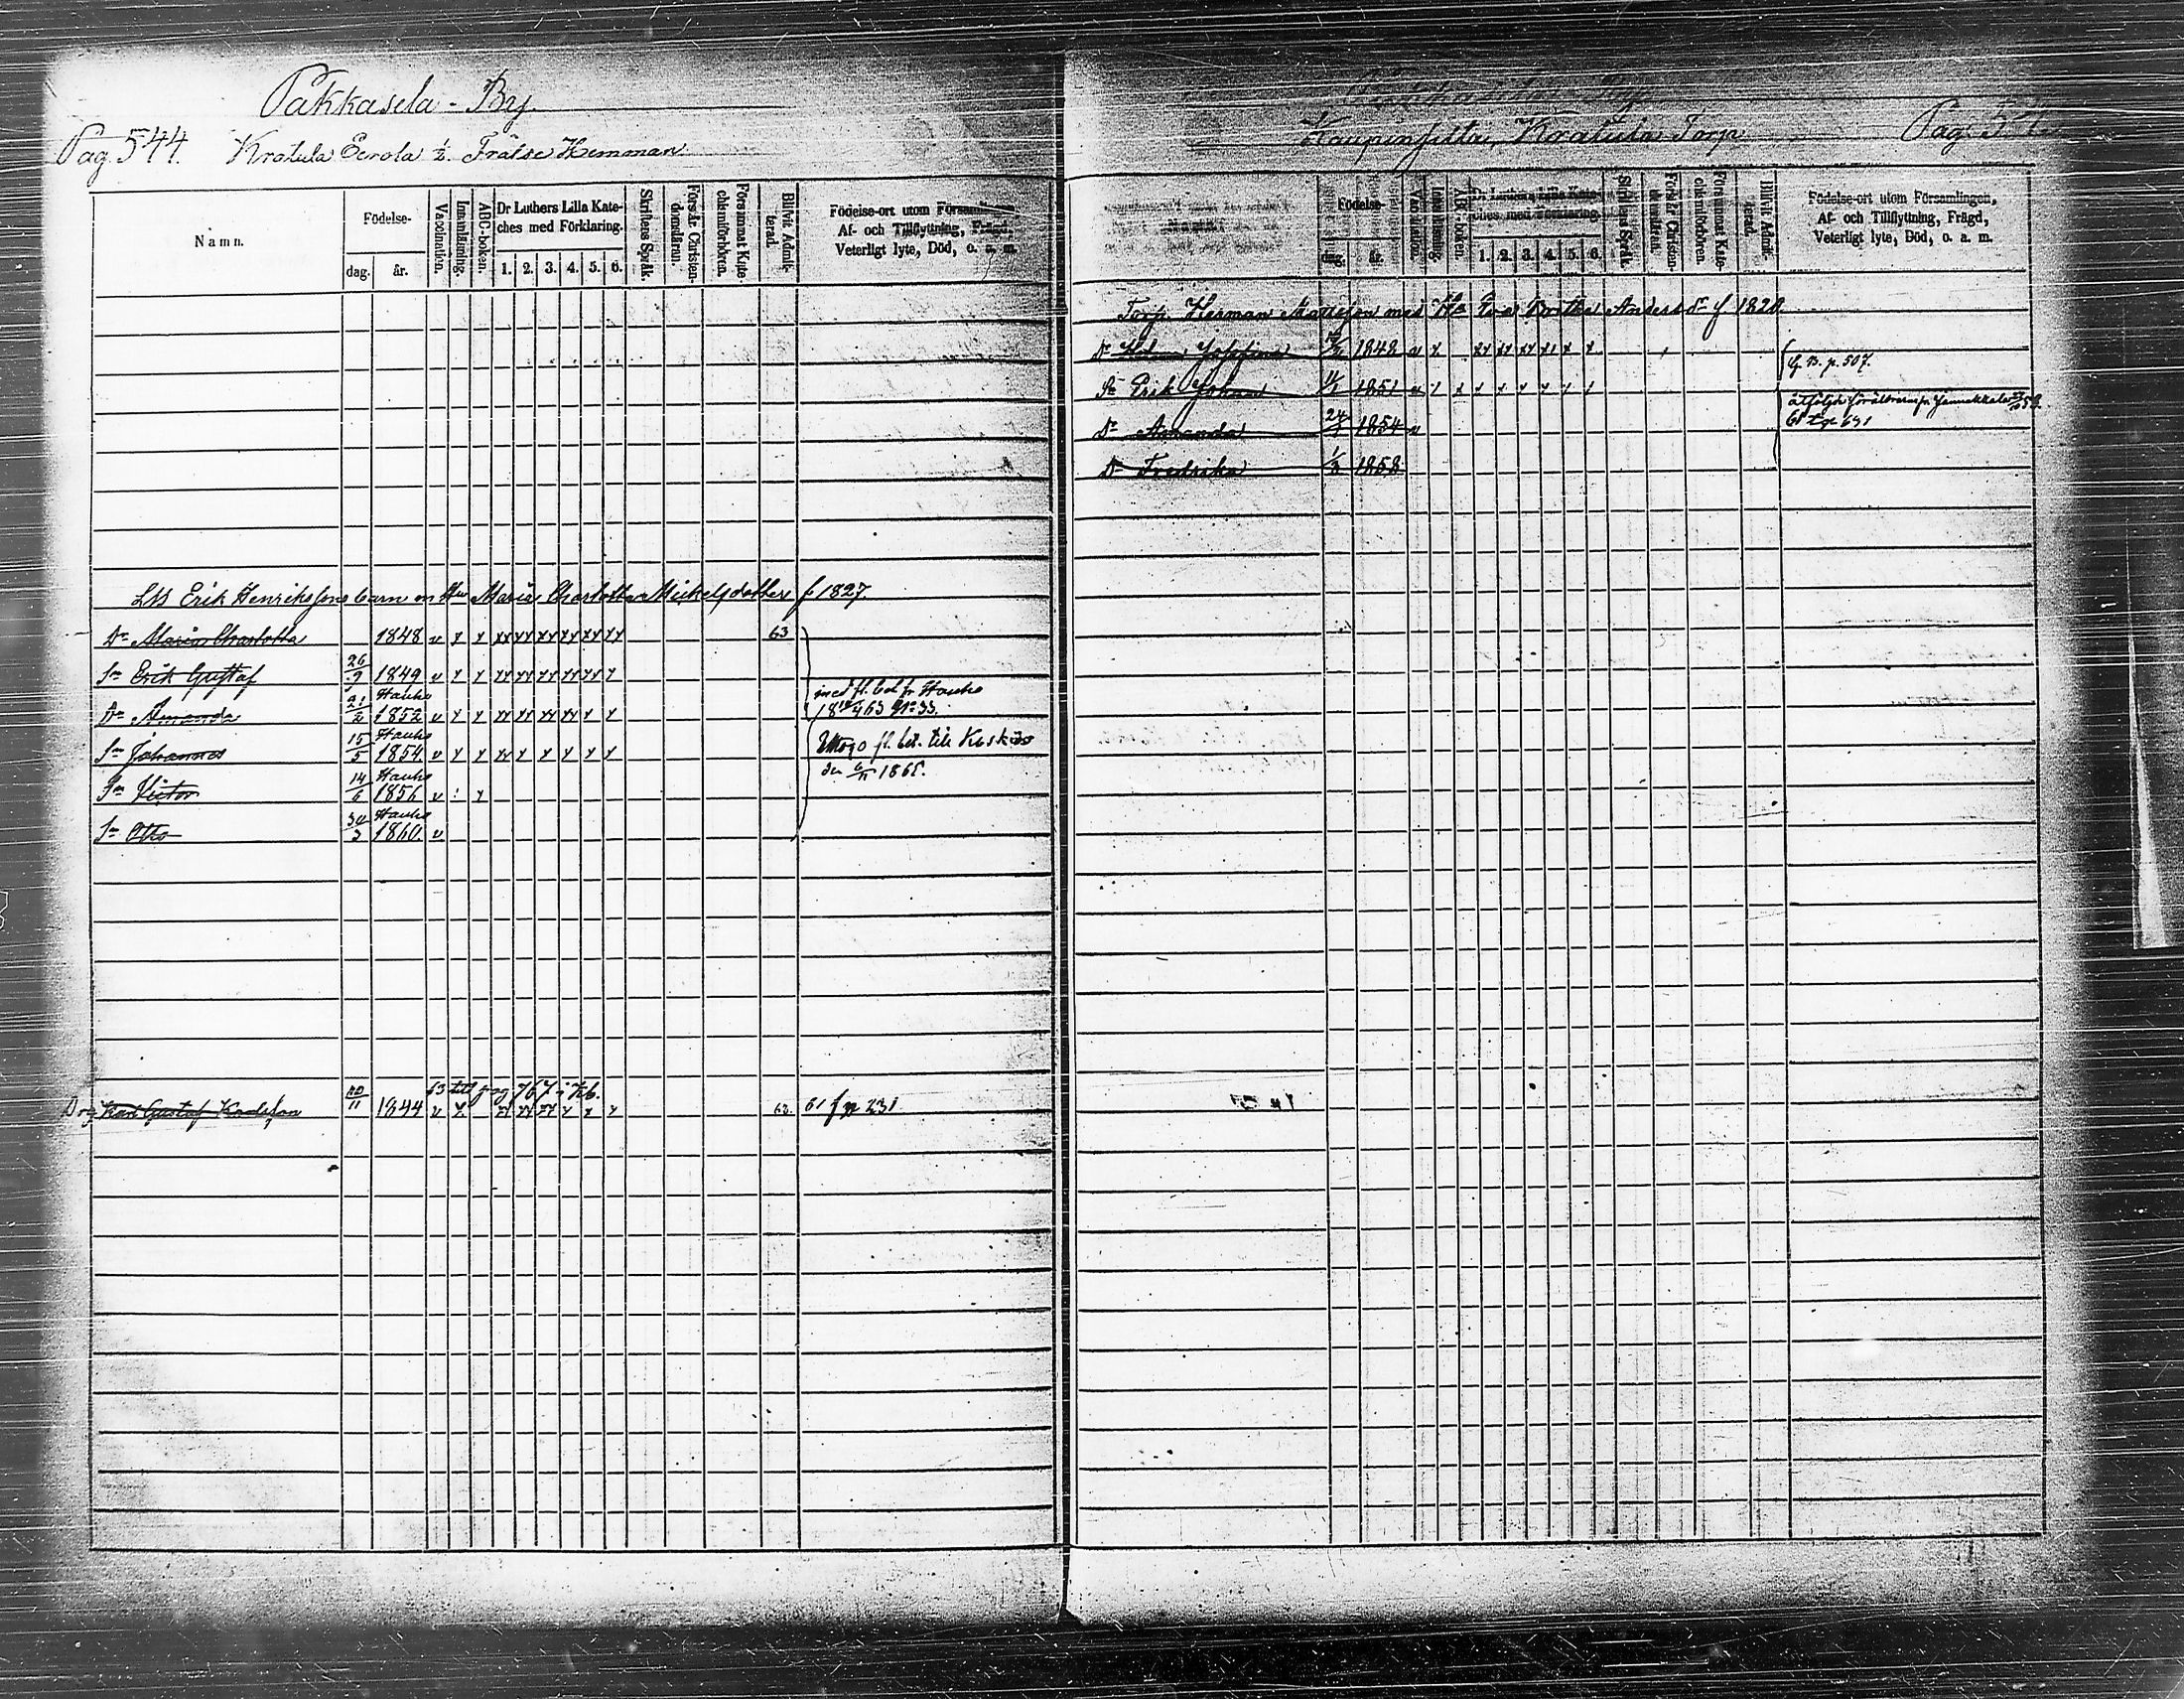 Pakkasela - By.
Pag. 544. Kratula Eerola ½. Frälse Hemman
Namn.
Födelse-
dag. år.
Vaccination.
Innanläsning.
ABC-boken.
Dr Luthers Lilla Kate-
ches med Förklaring.
1. 2. 3. 4. 5. 6.
Skriftens Språk.
Förstår Christen-
domsläran.
Försummat Kate-
chismiförhören.
Blivit Admit-
terad.
Födelse-ort utom Församlingen,
Af- och Tillflyttning, Frägd,
Veterligt lyte, Död, o. a. m.
Erik Henrikssons barn m Hu Maria Charlotta Michelsdotter f 1827.
Dr Maria Charlotta 1848 v x x xx xx xx xx xx xx 63
Sn Erik Gustaf 26/9 1849 v x x xx xx xx xx xx x
Dr Amanda 21/2 Hauho 1852 v x x xx xx xx xx x x
med fl. bet fr Hauho
Sn Johannes 15/5 Hauho 1854 v x x xx x x x x x
fl. bet. till
den 6/11 1865.
Sn Victor 14/6 Hauho 1856 v x
Sn Otto 30/3 Hauho 1860 v
63 till pag 767 i Kb.
Drg Karl Gustaf Karlsson 20/11 1844 v x xx xx xx x x x 62. 61 f p 231
Kaupinsilta, Kratula Torp Pag.
Födelse-
dag. år.
Vaccination.
Innanläsning.
ABC-boken.
Dr Luthers Lilla Kate-
ches med Förklaring.
1. 2. 3. 4. 5. 6.
Skriftens Språk.
Förstår Christen-
domsläran.
Försummat Kate-
chismiförhören.
Blivit Admit-
terad.
Födelse-ort utom Församlingen,
Af- och Tillflyttning, Frägd,
Veterligt lyte, Död, o. a. m.
Torp. Herman Mattsson med Hu Eva Andersdr f 1820
Dr Josefina 1848 v x xx xx xx x x x
K. B. p. 507.
Sn Erik Johan 1851 v x x x x x x x x
åtföljde föräldrarne fr Janakkala
61 t p 631
Dr Amanda 24/7 1854 v
Dr Fredrika 1/3 1858